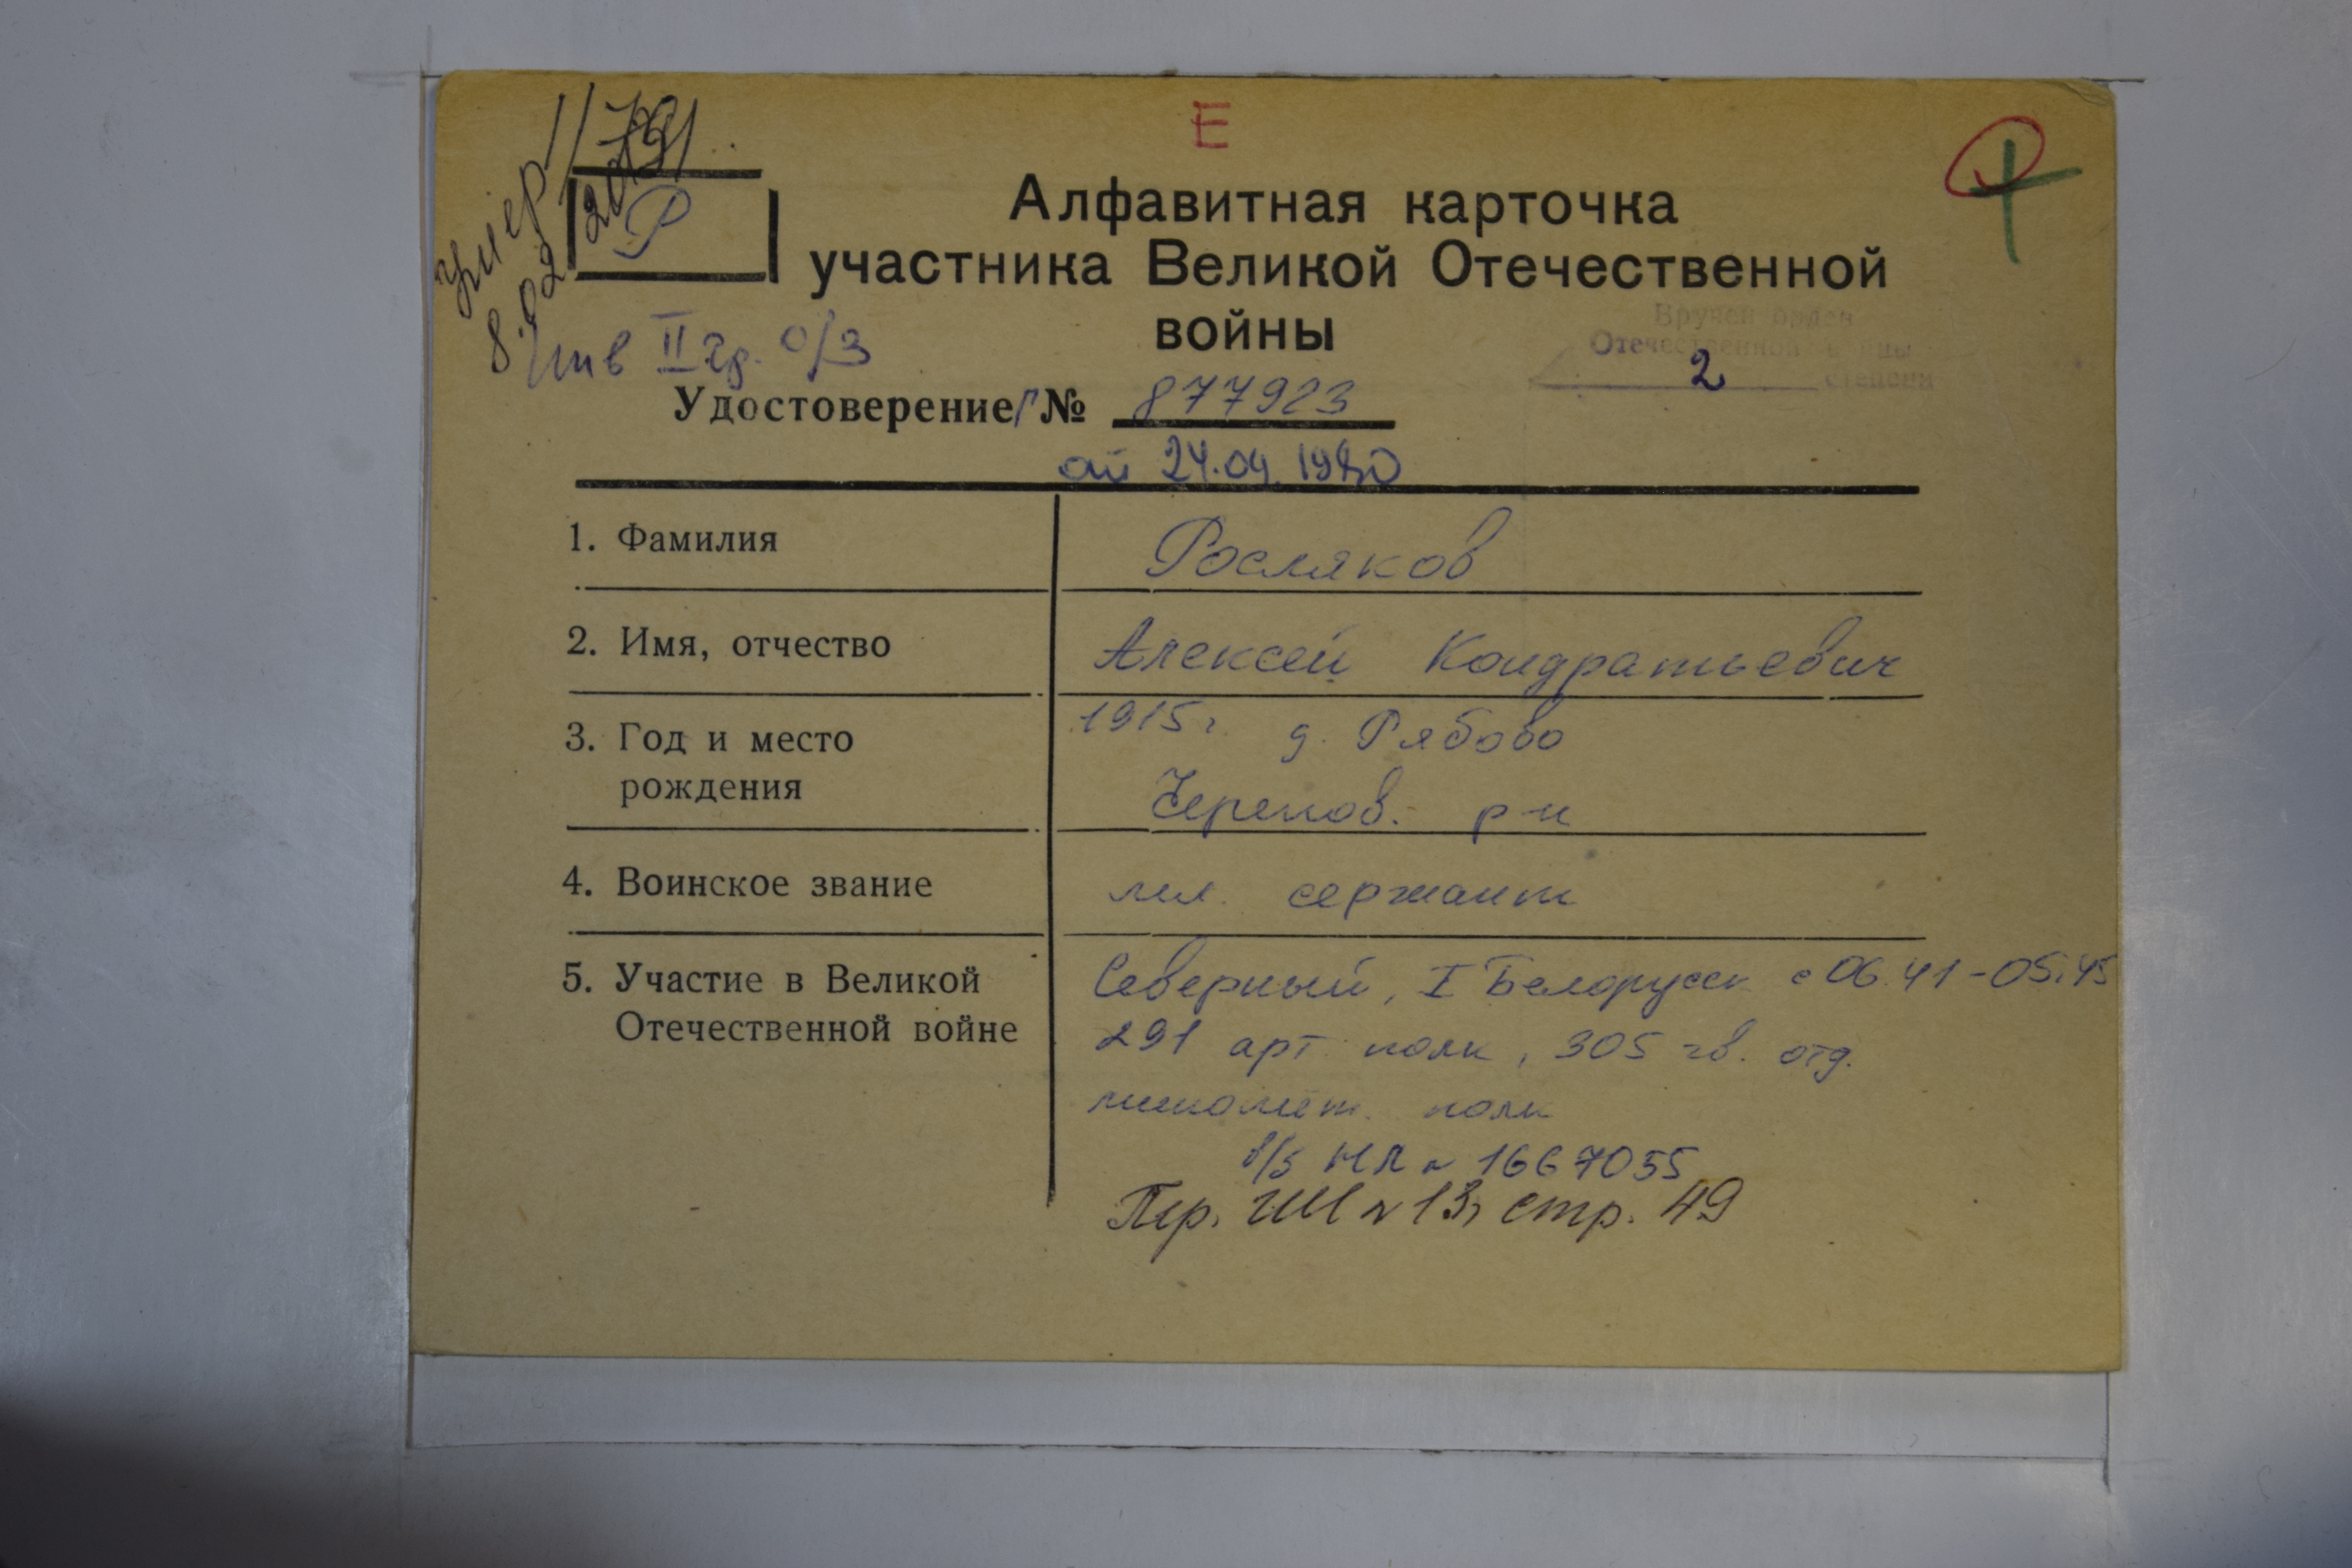 Е
Р
Алфавитная карточка
участника Великой Отечественной
войны
умер
8.02
Инв II гр. о/з
Вручен орден
Отечественной войны
2 степени
Удостоверение Г № 877923
от 24.09.1980
1. Фамилия
Росляков
2. Имя, отчество
Алексей Кондратьевич
3. Год и место
рождения
1915 г д. Рябово
Черепов. р-н
4. Воинское звание
мл. сержант
5. Участие в Великой
Отечественной войне
Северный, I Белорусск с 06.41-05.45
291 арт полк, 305 гв. отд.
миномёт. полк
в/б НЛ № 1667055
Пер. № 13, стр. 49